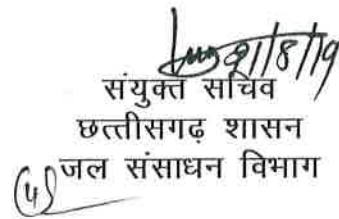 21/8/19
संयुक्त सचिव
छत्तीसगढ़ शासन
जल संसाधन विभाग
(4)